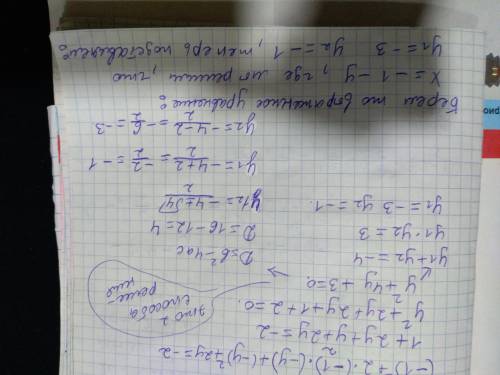 (-1)²+2·(-1)·(-y)+(-y)²+2y=-2
1+2y+y²+2y=-2
y²+2y+2y+1+2=0.
y²+4y+3=0
это 2
способа
реше-
ния
y₁+y₂=-4
y₁·y₂=3
y₁=-3 y₂=-1.
D=b²-4ac
D=16-12=4
y₁₂=(-4±√4)/2
y₁=(-4+2)/2=-2/2=-1
y₂=(-4-2)/2=-6/2=-3
Берем то выраженное уравнение:
x=-1-y, где мы решили, что
y₁=-3 y₂=-1, теперь подставляем: